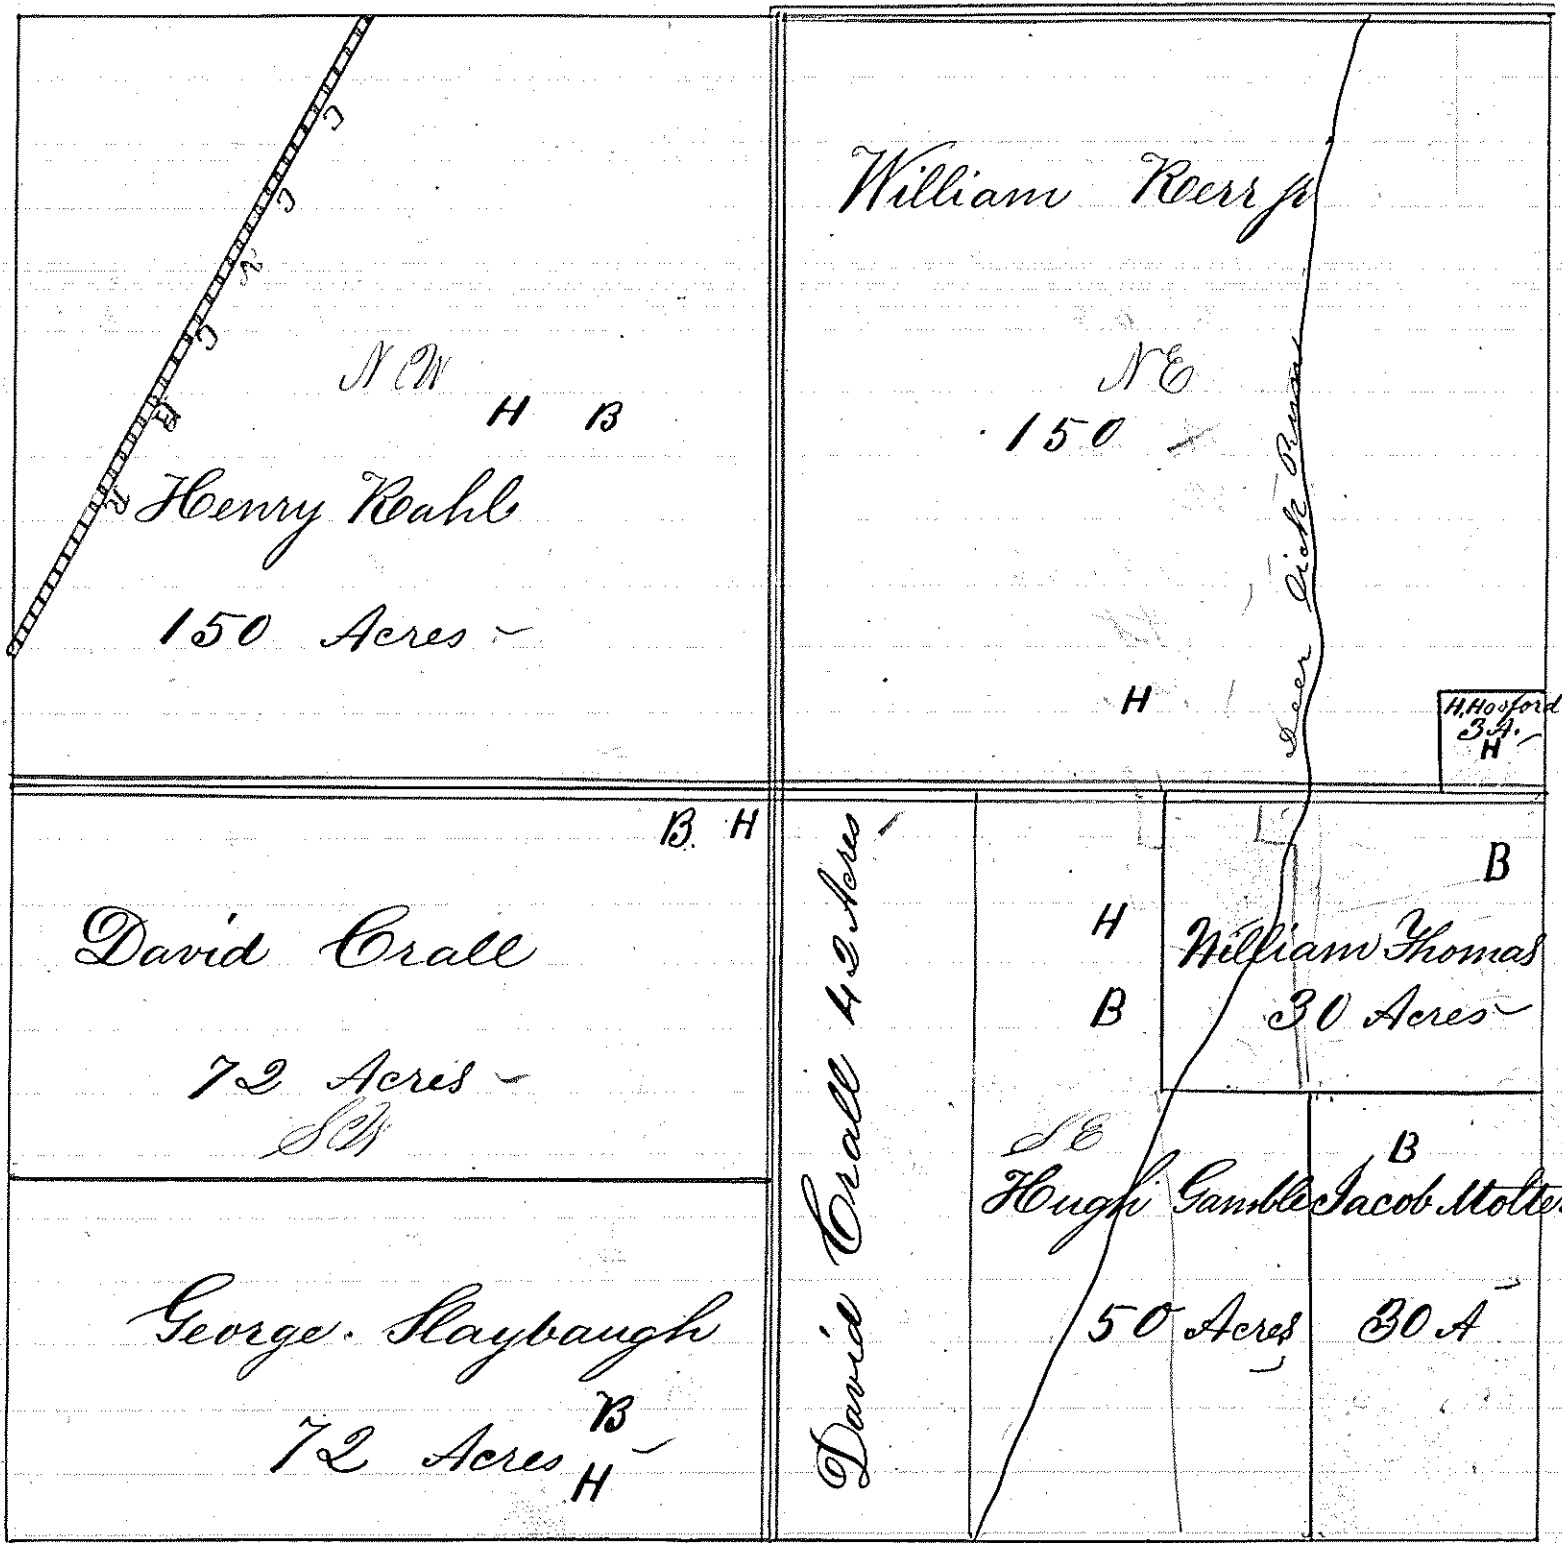 N W
H B
Henry Kahl
150 Acres
William Kerr jr
NE
150
Deer Lick Run
H
H. Hosford
3 A.
H
B. H
David Crall
72 Acres
SW
George. Slaybaugh
72 Acres
B
H
David Crall 42 Acres
H
B
SE
Hugh Gamble
50 Acres
B
William Thomas
30 Acres
B
Jacob
30 A